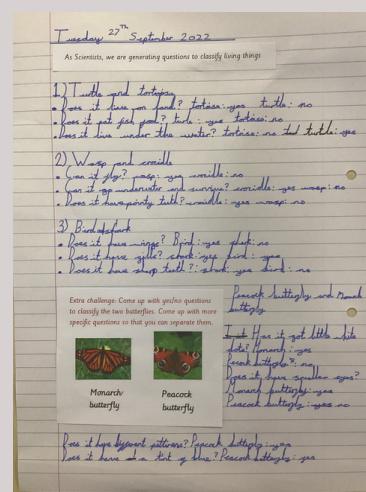 Tuesday 27th September 2022
As Scientists, we are generating questions to classify living things
1) Turtle and tortoise
• Does it live on land? tortoise: yes turtle: no
• Does it eat fish food? turtle: yes tortoise: no
• Does it live under the water? tortoise: no turtle: yes
2) Wasp and crocodile
• Can it fly? wasp: yes crocodile: no
• Can it go underwater and survive? crocodile: yes wasp: no
• Does it have pointy teeth? crocodile: yes wasp: no
3) Bird and shark
• Does it have wings? Bird: yes shark: no
• Does it have gills? shark: yes bird: yes
• Does it have sharp teeth? shark: yes bird: no
Extra challenge: Come up with yes/no questions
to classify the two butterflies. Come up with more
specific questions so that you can separate them.
Monarch
butterfly
Peacock
butterfly
Peacock butterfly and Monarch
butterfly
Has it got little white
dots? Monarch: yes
Peacock butterfly: no
Does it have smaller eyes?
Monarch butterfly: yes
Peacock butterfly: no
Does it have different patterns? Peacock butterfly: yes
Does it have a tint of blue? Peacock butterfly: yes